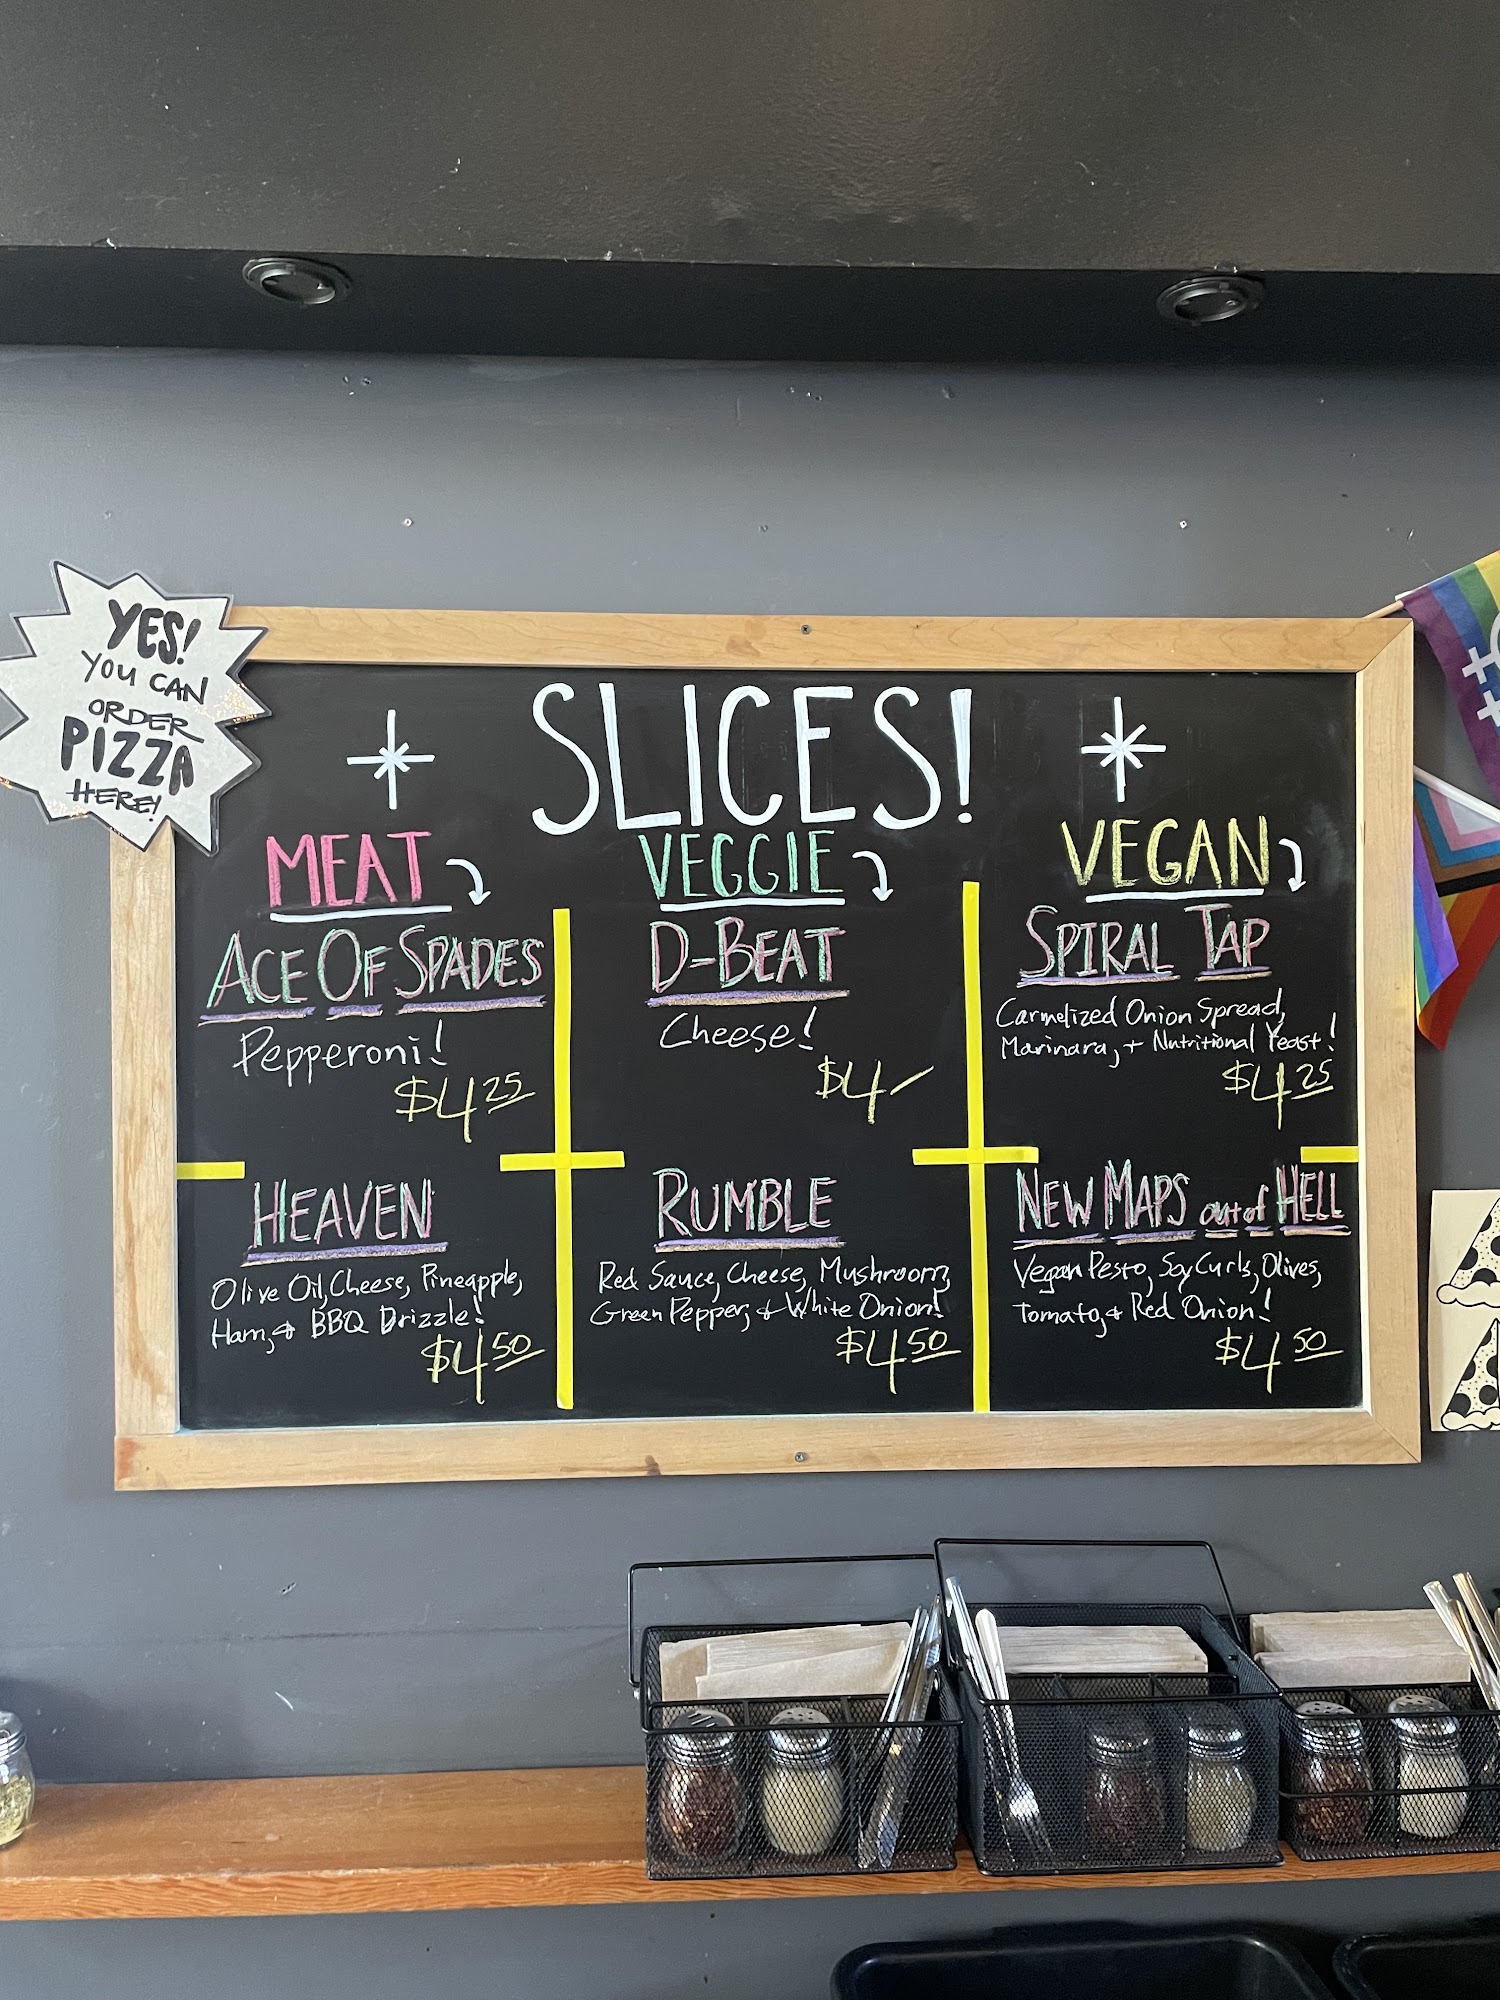 YES!
YOU CAN
ORDER
PIZZA
HERE!
SLICES!
MEAT
ACE OF SPADES
Pepperoni!
$4 25
HEAVEN
Olive Oil, Cheese, Pineapple,
Ham, & BBQ Drizzle!
$4 50
VEGGIE
D-BEAT
Cheese!
$4
RUMBLE
Red Sauce, Cheese, Mushroom,
Green Pepper, & White Onion!
$4 50
VEGAN
SPIRAL TAP
Carmelized Onion Spread,
Marinara, + Nutritional Yeast!
$4 25
NEW MAPS out of HELL
Vegan Pesto, Soy Curls, Olives,
Tomato, & Red Onion!
$4 50